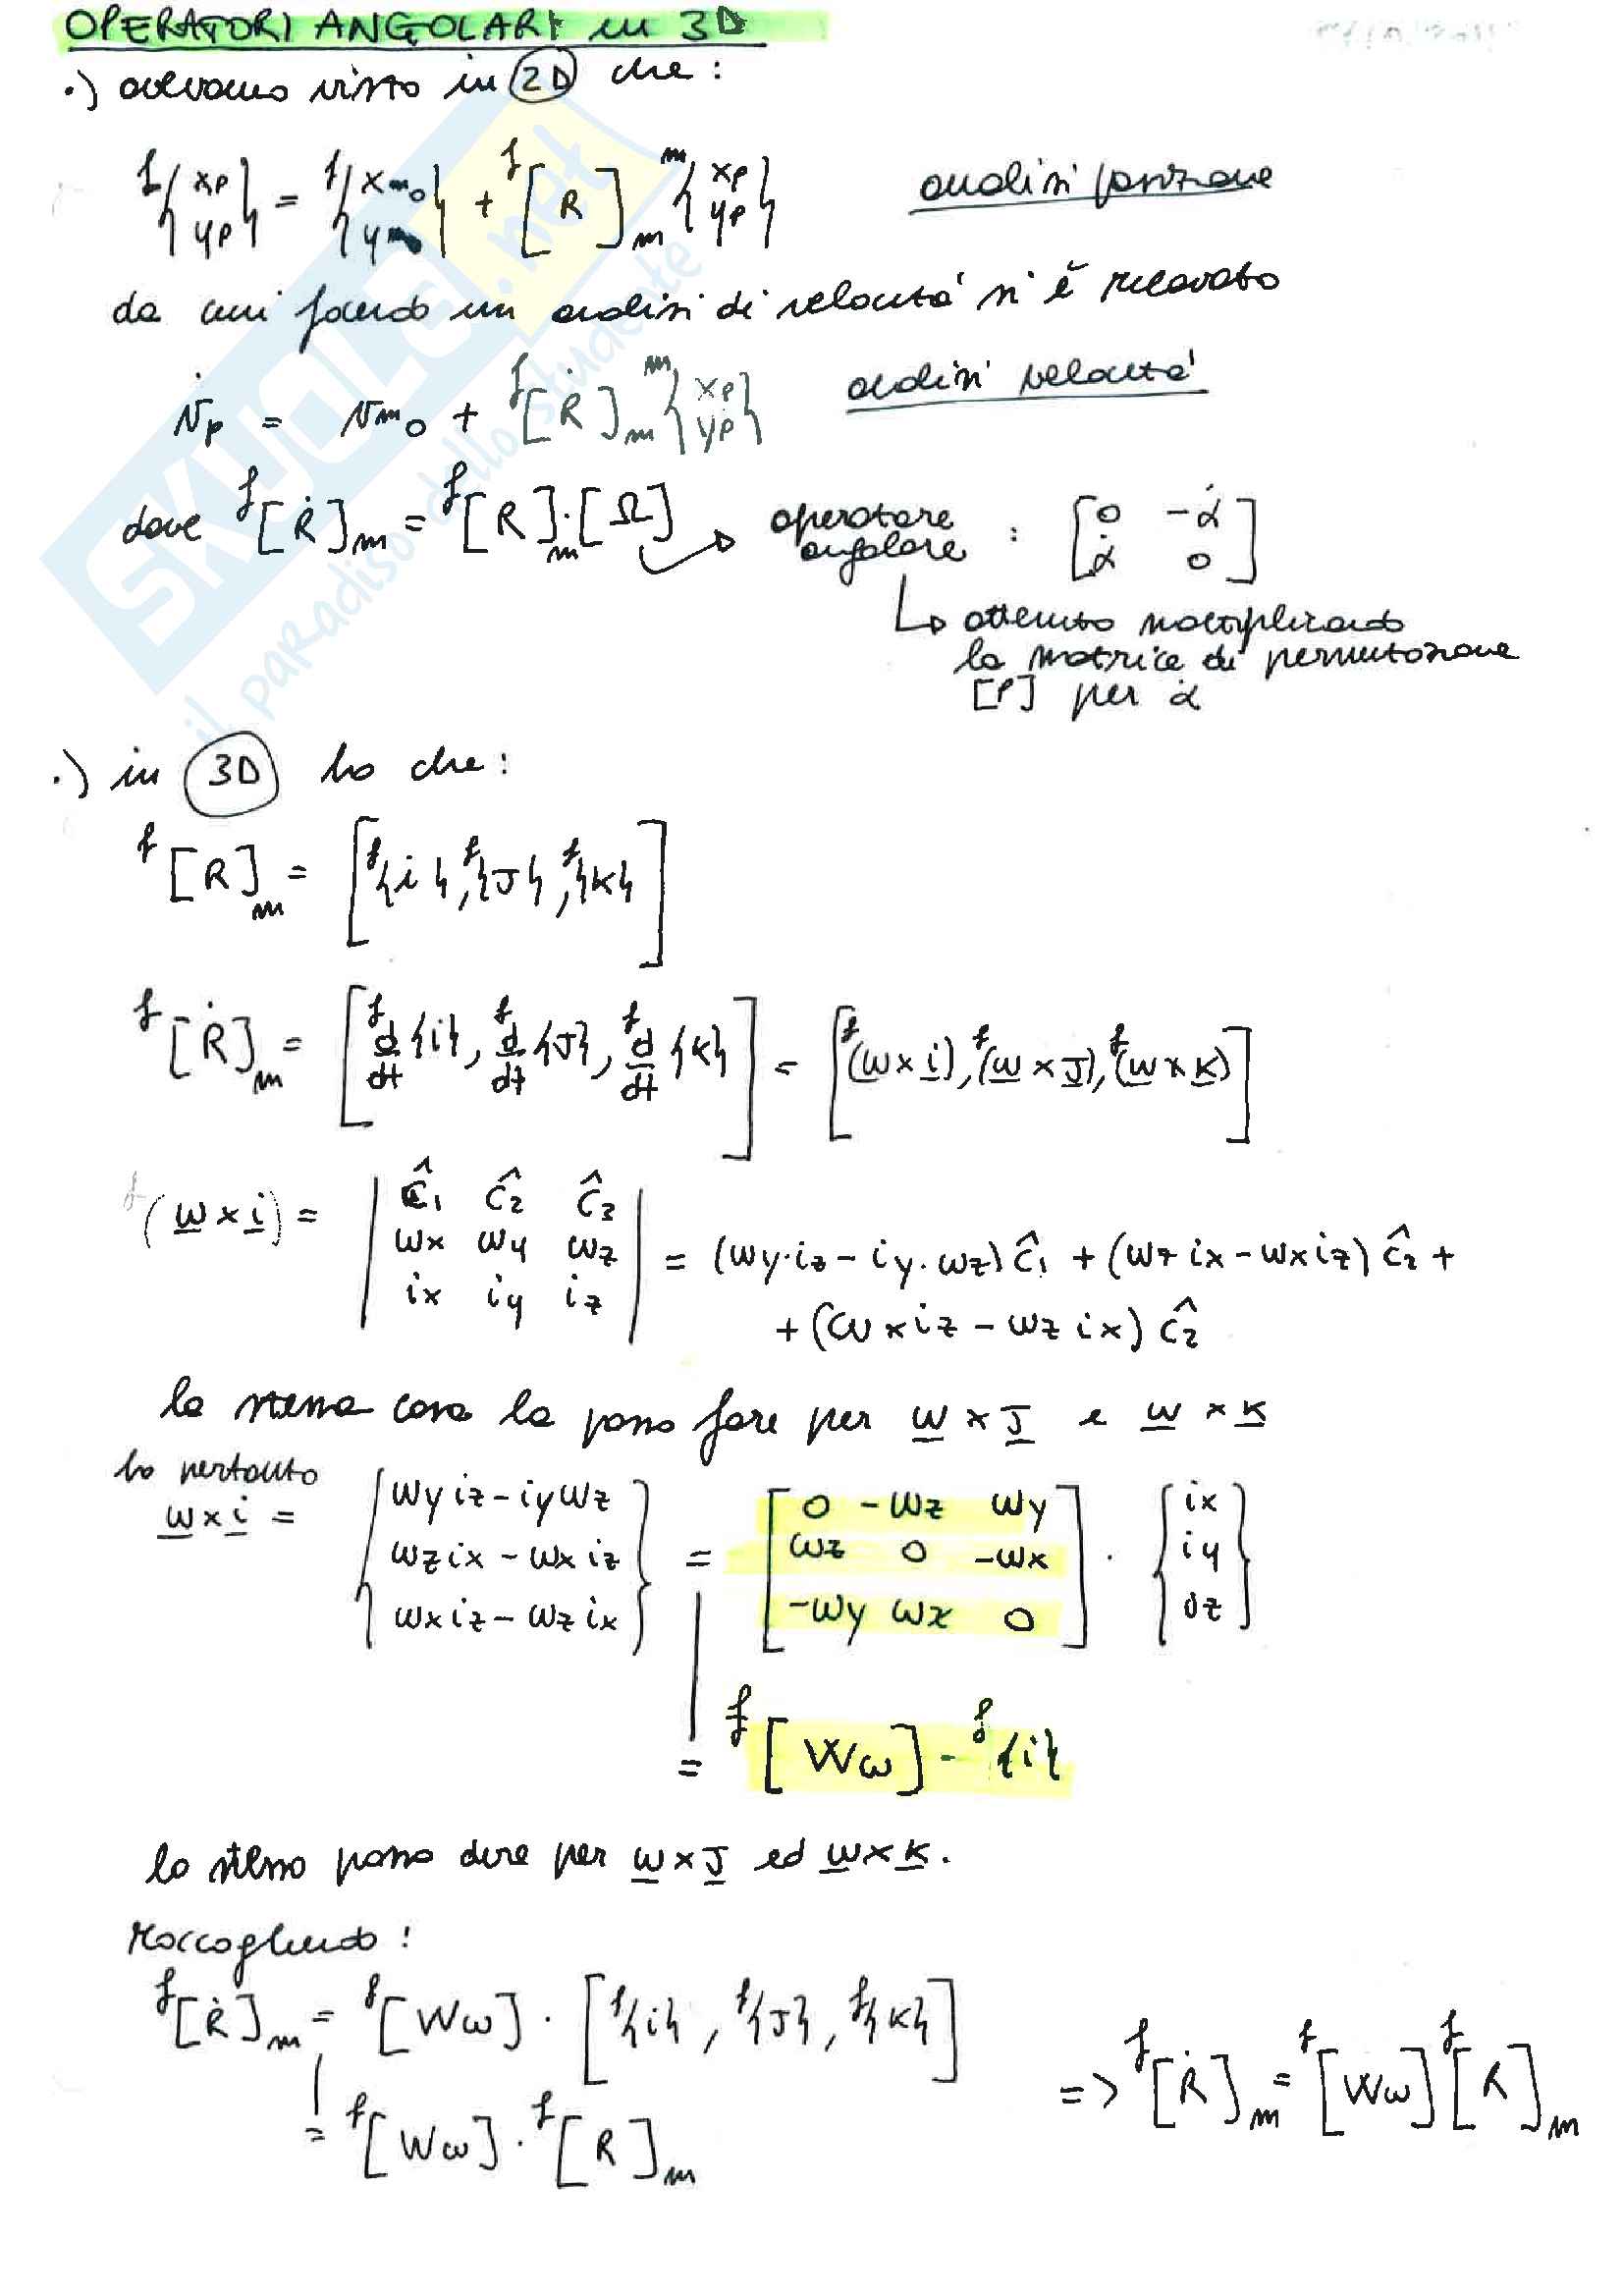 OPERATORI ANGOLARI in 3D
·) avevamo visto in 2D che :
f{xp yp} = f{xm0 ym0} + f[R]m m{xp yp} analisi posizione
da cui facendo un analisi di velocità si è ricavato
vp = vm0 + f[Ṙ]m m{xp yp} analisi velocità
dove f[Ṙ]m = f[R]m·[Ω] → operatore angolare : [0 -α̇ α̇ 0]
↳ ottenuto moltiplicando
la matrice di permutazione
[P] per α̇
·) in 3D ho che :
f[R]m = [f{i}, f{J}, f{K}]
f[Ṙ]m = [f d/dt {i}, f d/dt {J}, f d/dt {K}] = [f(w × i), f(w × J), f(w × K)]
f(w × i) = | ĉ1 ĉ2 ĉ3
wx wy wz
ix iy iz | = (wy·iz - iy·wz) ĉ1 + (wz ix - wx iz) ĉ2 +
+ (wx iz - wz ix) ĉ2
la stessa cosa la posso fare per w × J e w × K
ho pertanto
w × i = {wy iz - iy wz
wz ix - wx iz
wx iz - wz ix} = [0 -wz wy
wz 0 -wx
-wy wx 0] · {ix iy iz}
= f[Wω] - f{i}
lo stesso posso dire per w × J ed w × K.
Raccogliendo :
f[Ṙ]m = f[Wω] · [f{i}, f{J}, f{K}]
= f[Wω] · f[R]m
=> f[Ṙ]m = f[Wω] f[R]m
SKUOLA.net
il paradiso dello studente